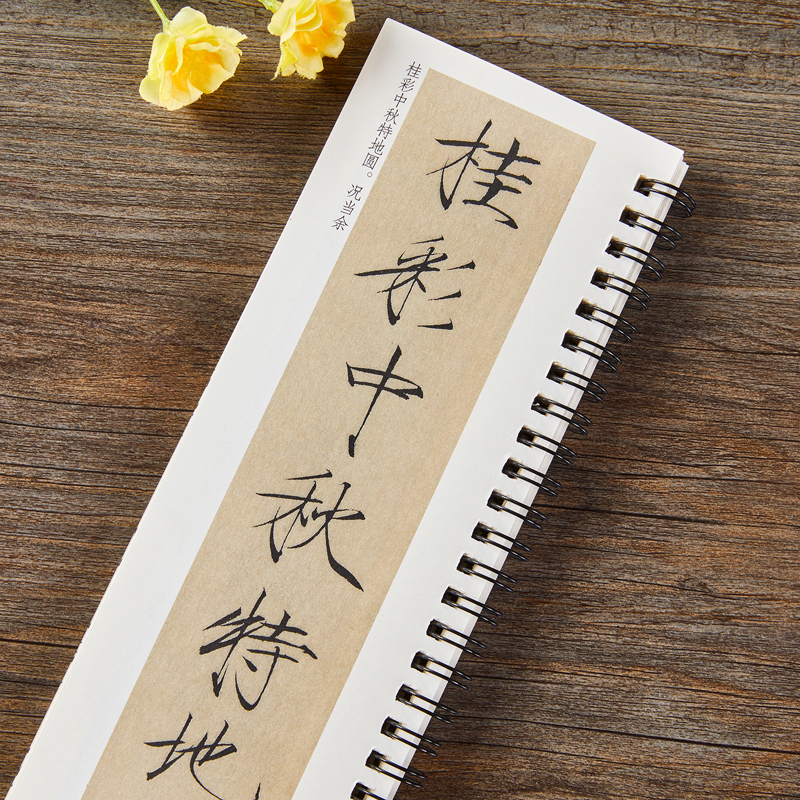 桂彩中秋特地
桂彩中秋特地圆。 况当余